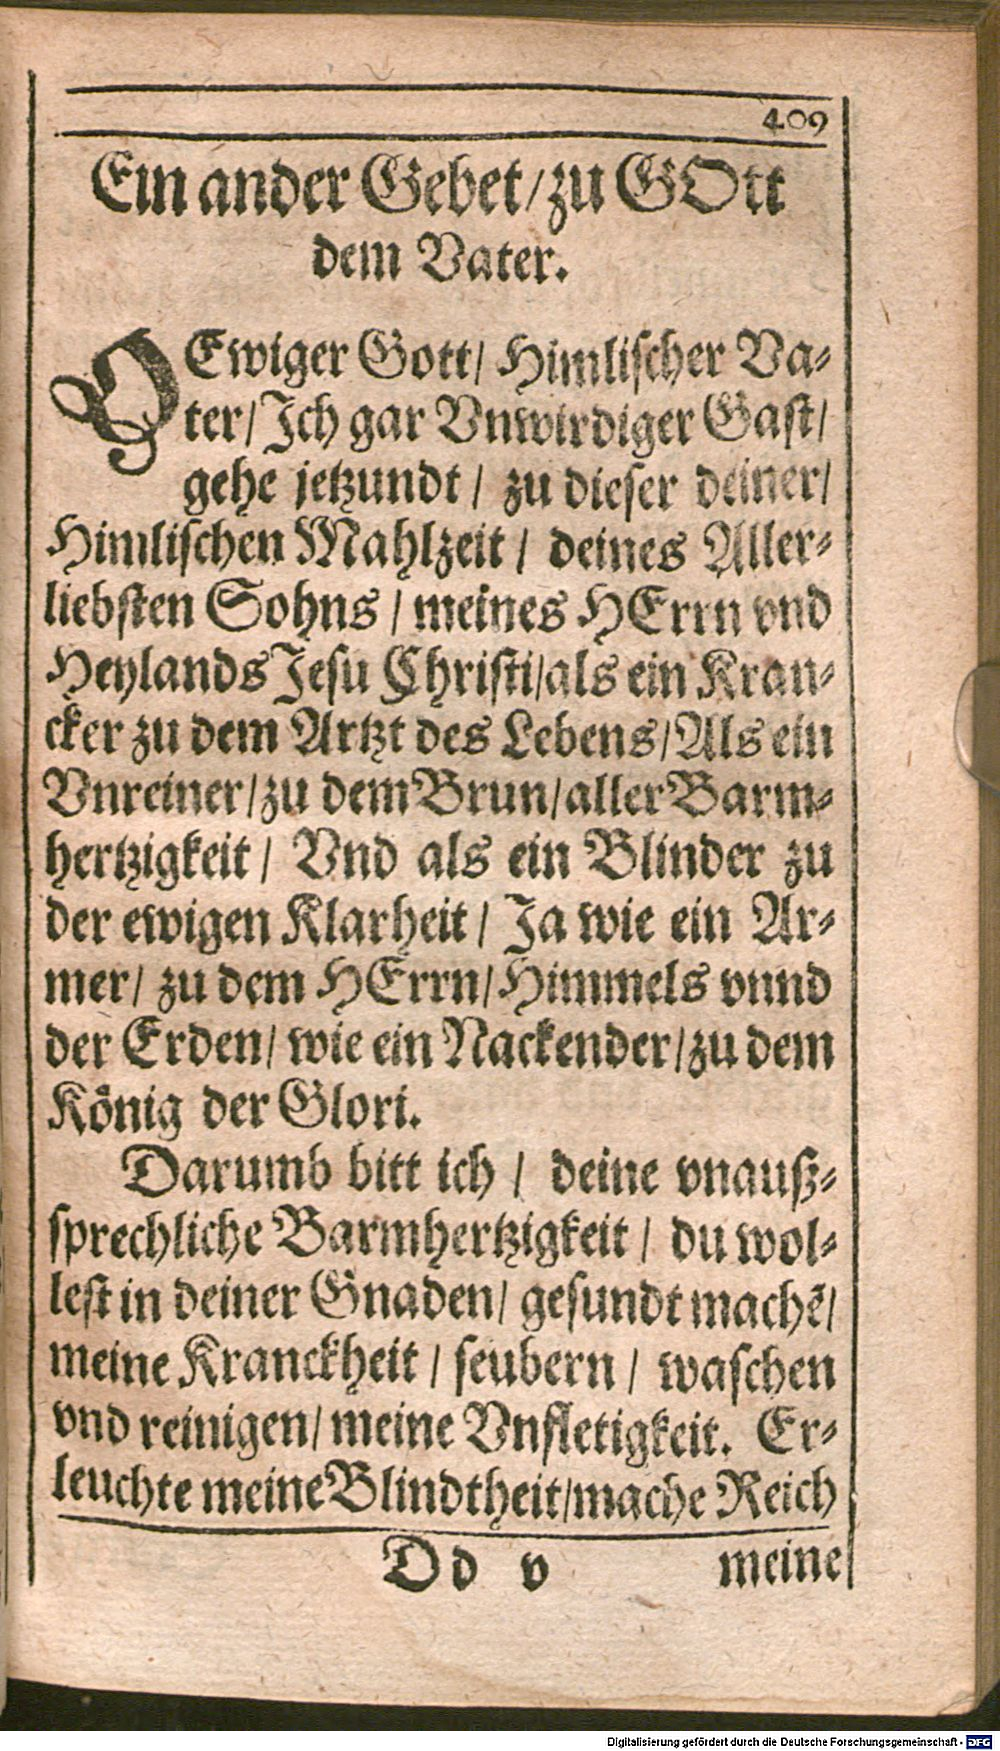 409
Ein ander Gebet/zu GOtt
dem Vater.
O Ewiger Gott/ Himlischer Va-
ter/Ich gar Vnwirdiger Gast/
gehe jetzundt / zu dieser deiner/
Himlischen Mahlzeit / deines Aller-
liebsten Sohns / meines HErrn vnd
Heylands Jesu Christi/als ein Kran-
cker zu dem Artzt des Lebens/Als ein
Vnreiner/zu dem Brun/aller Barm-
hertzigkeit / Vnd als ein Blinder zu
der ewigen Klarheit / Ja wie ein Ar-
mer/ zu dem HErrn/Himmels vnnd
der Erden/ wie ein Nackender/zu dem
König der Glori.
Darumb bitt ich / deine vnauß-
sprechliche Barmhertzigkeit / du wol-
lest in deiner Gnaden/ gesundt machẽ/
meine Kranckheit / seubern / waschen
vnd reinigen/ meine Vnfletigkeit. Er-
leuchte meine Blindtheit/mache Reich
Dd v meine
Digitalisierung gefördert durch die Deutsche Forschungsgemeinschaft - DFG